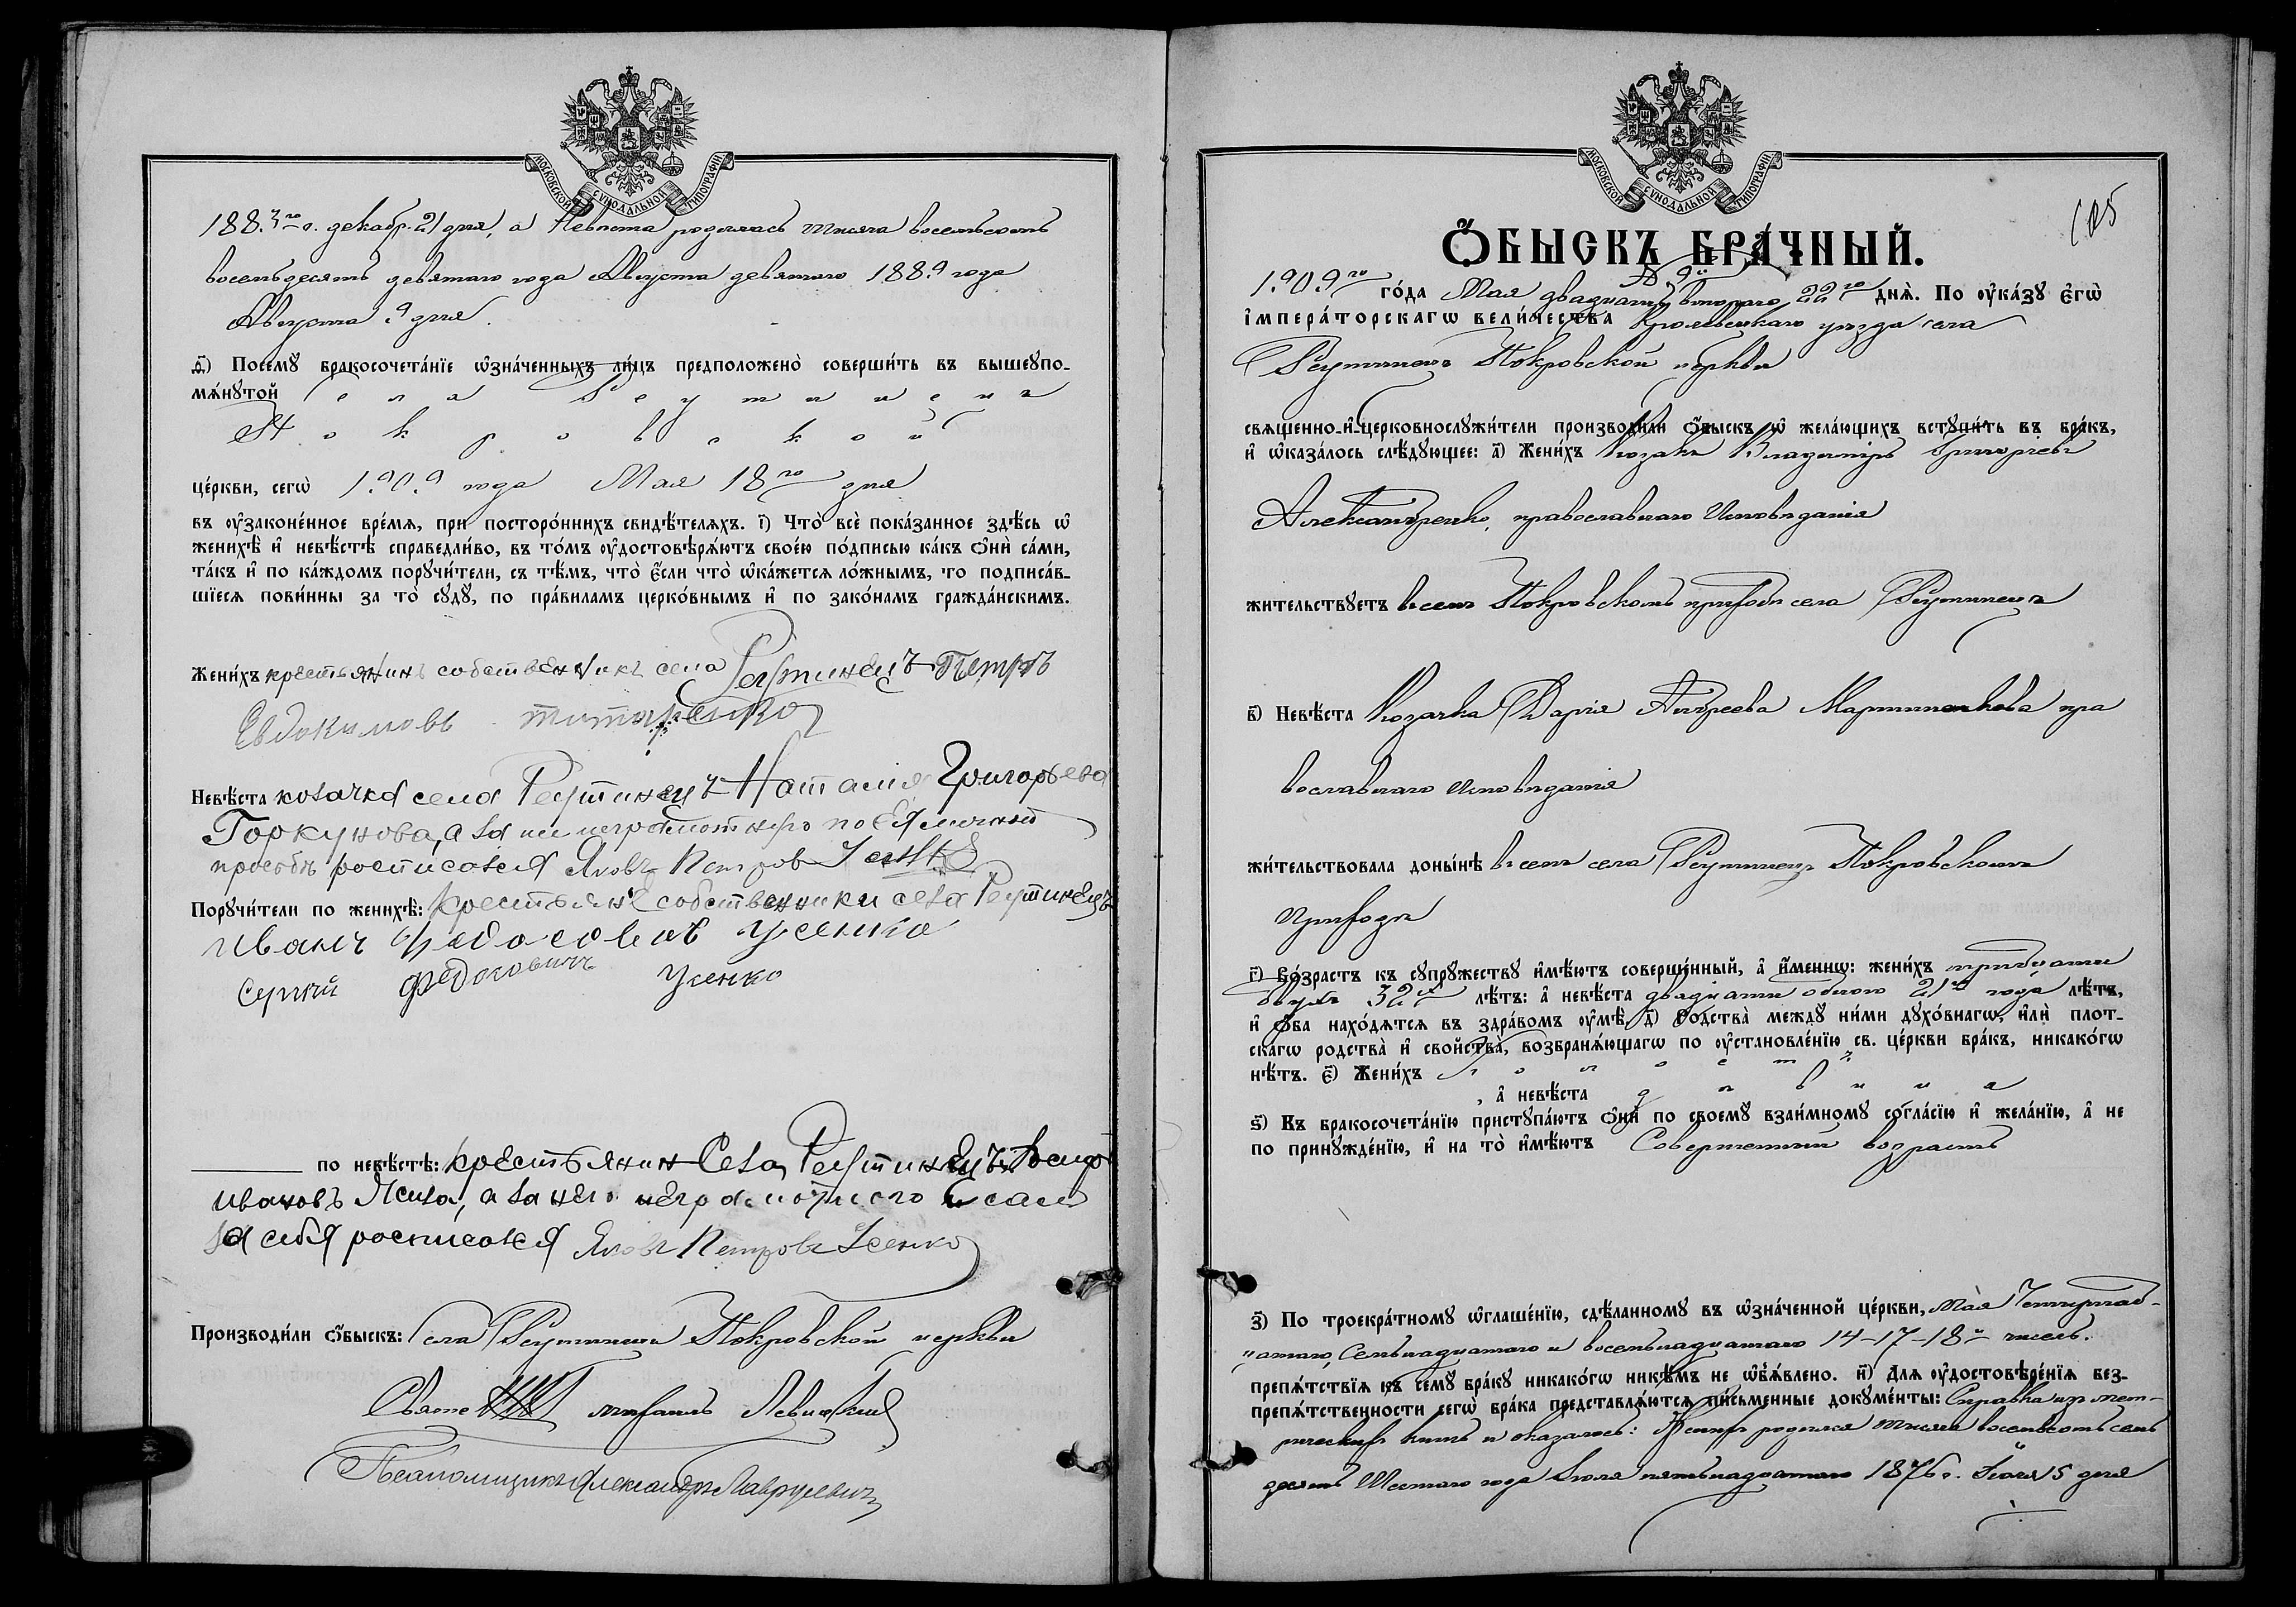 МОСКОВСКОЙ СѴНОДАЛЬНОЙ ТИПОГРАФІИ
1883го г. декабр. 21 дня, а Невѣста родилась тысяча восемьсотъ
восемьдесятъ девятаго года Августа девятаго 1889 года
Августа 9 дня.
д҃і) Посемꙋ бракосочета́нїе ѡ҆зна́ченныхъ ли́цъ предположено̀ соверши́ть въ вышеупо-
мѧ́нꙋтой села Реутинецъ
Покровской
це́ркви, сегѡ̀ 1909 года Мая 18го дня
въ ᲂу҆законе́нное вре́мѧ, при посторо́ннихъ свидѣ́телѧхъ. і҃) Что̀ всѐ пока́занное здѣ́сь ѡ҆
женихѣ̀ и҆ невѣ́стѣ справедли́во, въ то́мъ ᲂу҆достовѣрѧ́ютъ свое́ю по́дписью ка́къ ѻ҆нѝ са́ми,
та́къ и҆ по ка́ждомъ порꙋчи́тели, съ тѣ́мъ, что̀ є҆́сли что̀ ѡ҆ка́жетсѧ ло́жнымъ, то подписа́в-
шїесѧ пови́нны за то̀ сꙋдꙋ̀, по пра́виламъ церко́внымъ и҆ по зако́намъ гражда́нскимъ.
Жени́хъ крестьянинъ собственникъ села Реутинецъ Петръ
Евдокимовъ Титаренко
Невѣ́ста козачка села Реутинецъ Наталія Григорьева
Горкунова, а за ни неграмотную по ея личной
просьбѣ росписался Яковъ Петров Усенко
Порꙋчи́тели по женихѣ̀: Крестьяне собственники села Реутинецъ
Иванъ Федосовъ Усенко
Сергій Федосовичъ Усенко
по невѣ́стѣ: крестьянин Села Реутинецъ Іосиф
Ивановъ Ясиза, а за него неграмотного и сам
за себя росписался Яковъ Петровъ Усенко
Производи́ли ѻ҆́быскъ: Села Реутинецъ Покровской церкви
Свяще Михаилъ Левицкій
Псаломщикъ Александръ Лаврусевичъ
МОСКОВСКОЙ СѴНОДАЛЬНОЙ ТИПОГРАФІИ
105
Ѻ҆́БЫСКЪ БРА́ЧНЫЙ.
№ 9й
1909го го́да Мая двадцать втораго 22го днѧ̀. По ᲂу҆ка́зꙋ є҆гѡ̀
і҆мпера́торскагѡ вели́чества Кролевецкаго уѣзда села
Реутинецъ Покровской церкви
свѧще́нно-и҆-церковнослꙋжи́тели производи́ли ѻ҆́быскъ ѡ҆ жела́ющихъ встꙋпи́ть въ бра́къ,
и҆ ѡ҆каза́лось слѣ́дꙋющее: а҃) Жени́хъ Козакъ Владиміръ Григорьевъ
Александренко, православнаго Исповѣданія
жи́тельствꙋетъ въ семъ Покровскомъ приходѣ села Реутинецъ
в҃) Невѣ́ста Козачка Дарія Андреева Мартиненкова пра
вославнаго исповѣданія
жи́тельствовала доны́нѣ въ семъ села Реутинецъ Покровскомъ
приходѣ
г҃) Во́зрастъ къ сꙋпрꙋ́жествꙋ и҆мѣ́ютъ соверше́нный, а҆ и҆́меннѡ: жени́хъ тридцати
двухъ 32хъ лѣ́тъ: а҆ невѣ́ста двадцати одного 21го года лѣ́тъ,
и҆ ѻ҆́ба нахо́дѧтсѧ въ здра́вомъ ᲂу҆мѣ̀. д҃) Родства̀ междꙋ ни́ми дꙋхо́внагѡ, и҆лѝ плот-
скагѡ родства̀ и҆ свойства̀, возбранѧ́ющагѡ по ᲂу҆становле́нїю св. це́ркви бра́къ, никако́гѡ
нѣ́тъ. є҃) Жени́хъ холостъ
, а҆ невѣ́ста дѣвица
ѕ҃) Къ бракосочета́нїю пристꙋпа́ютъ ѻ҆нѝ по своемꙋ̀ взаи́мномꙋ согла́сїю и҆ жела́нїю, а҆ не
по принꙋжде́нїю, и҆ на то̀ и҆мѣ́ютъ Совершенный возрастъ
з҃) По троекра́тномꙋ ѡ҆глаше́нїю, сдѣ́ланномꙋ въ ѡ҆зна́ченной це́ркви, Мая Четырнад-
цатаго, Семнадцатаго и восемнадцатаго 14-17-18й чиселъ.
препѧ́тствїѧ къ семꙋ̀ бра́кꙋ никако́гѡ никѣ́мъ не ѡ҆б̾ѧ́влено. и҃) Длѧ ᲂу҆достовѣре́нїѧ без-
препѧ́тственности сегѡ̀ бра́ка представлѧ́ютсѧ пи́сьменные докꙋме́нты: Справка изъ мет-
рическихъ книгъ и оказалось: Женихъ родился тысяча восемьсотъ семь
десятъ Шестаго года Іюля пятнадцатаго 1876 г. Іюля 15 дня